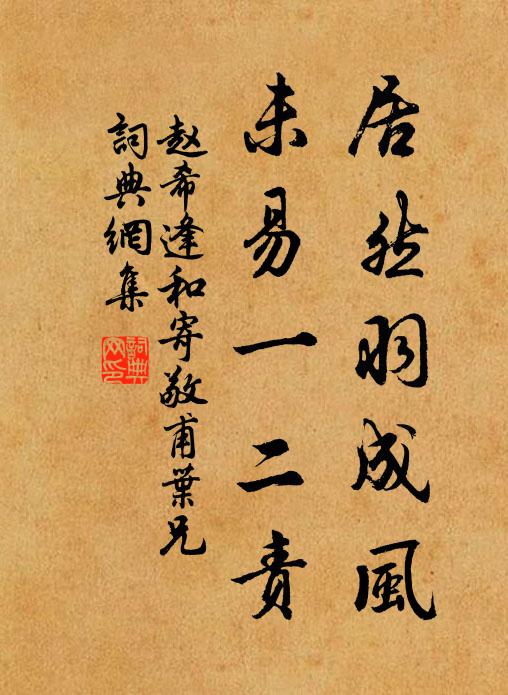 居然羽成風
未易一二責
赵希逢和寄敬甫葉兄
詞典網集
詞典網印